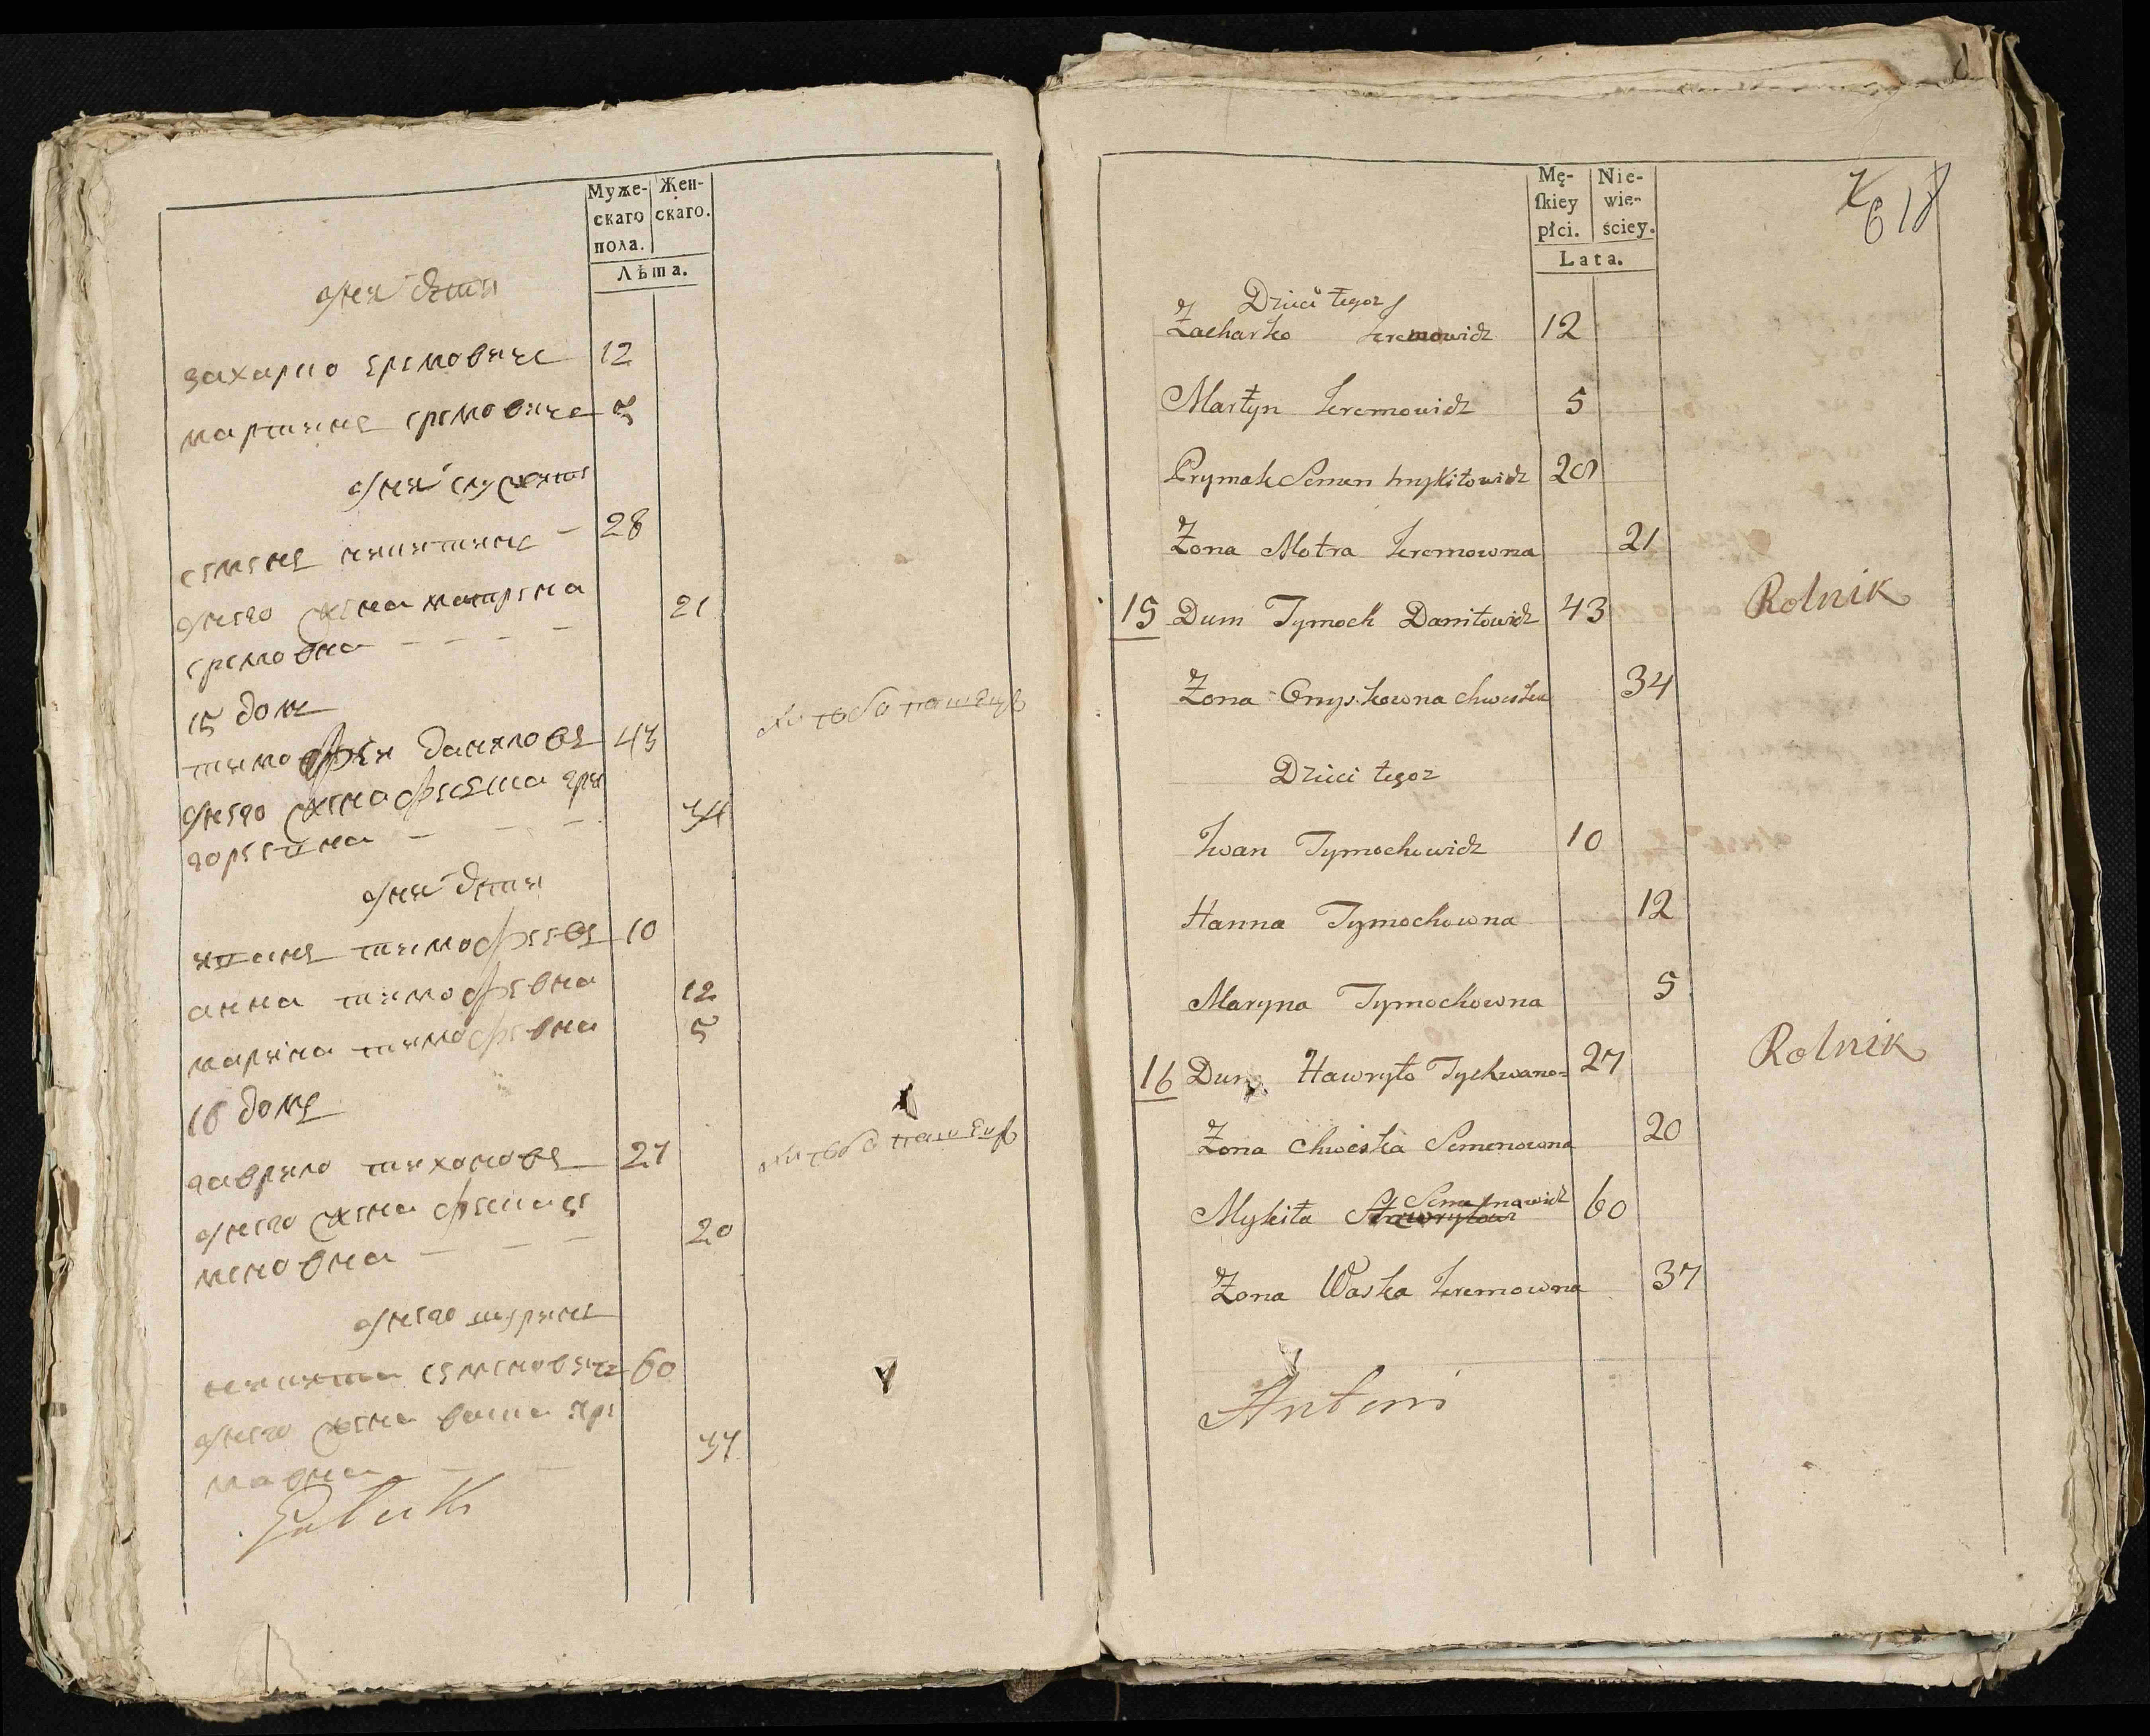 Муже-
скаго
пола.
Жен-
скаго.
Лѣта.
онихъ дѣти
захарко еремовичъ 12
мартинъ еремовичъ 5
семенъ никитинъ – 28
онаго жена матрена
еремовна – – – – 21
15 домъ
тимофѣй даниловъ 43 хлебопашецъ
онаго жена феска гри
горьевна – – – 34
онихъ дѣти
иванъ тимофеевъ 10
анна тимофевна 12
марина тимофевна 5
16 домъ
гаврило тихоновъ 27 хлебопашецъ
онаго жена феска се
меновна – – – 20
онаго шуринъ
никита семеновичъ 60
онаго жена васка яре
мовна – – 37
Mę-
skiey
płci.
Nie-
wie-
ściey.
Lata.
618
Dzieci tegoz
Zacharko Jeremowicz 12
Martyn Jeremowicz 5
Prymak Semen Mykitowicz 28
Żona Motra Jeremowna 21
15 Dum Tymoch Daniłowicz 43 Rolnik
Żona Onyskowna Chweska 34
Dzieci tegoz
Iwan Tymochowicz 10
Hanna Tymochowna 12
Maryna Tymochowna 5
16 Dum Hawryło Tychwano= 27 Rolnik
Żona Chweska Semenowna 20
Mykita Semenowicz 60
Żona Waska Jeremowna 37
Antoni